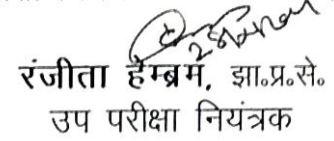 रंजीता हेम्ब्रम, झा.प्र.से.
उप परीक्षा नियंत्रक